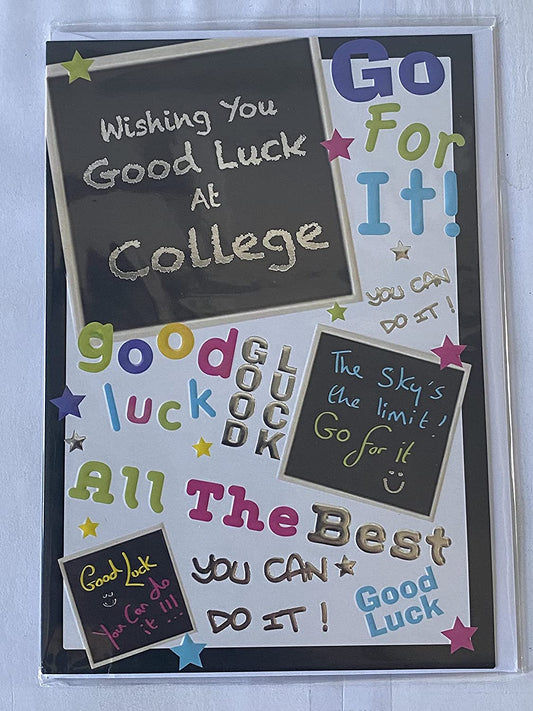 Wishing You
Good Luck
At
College
Go
For
It!
YOU CAN
DO IT!
good
luck
GOOD
LUCK
The Sky's
the limit!
Go for it
All The Best
Good Luck
You Can do
it !!!
YOU CAN
DO IT!
Good
Luck